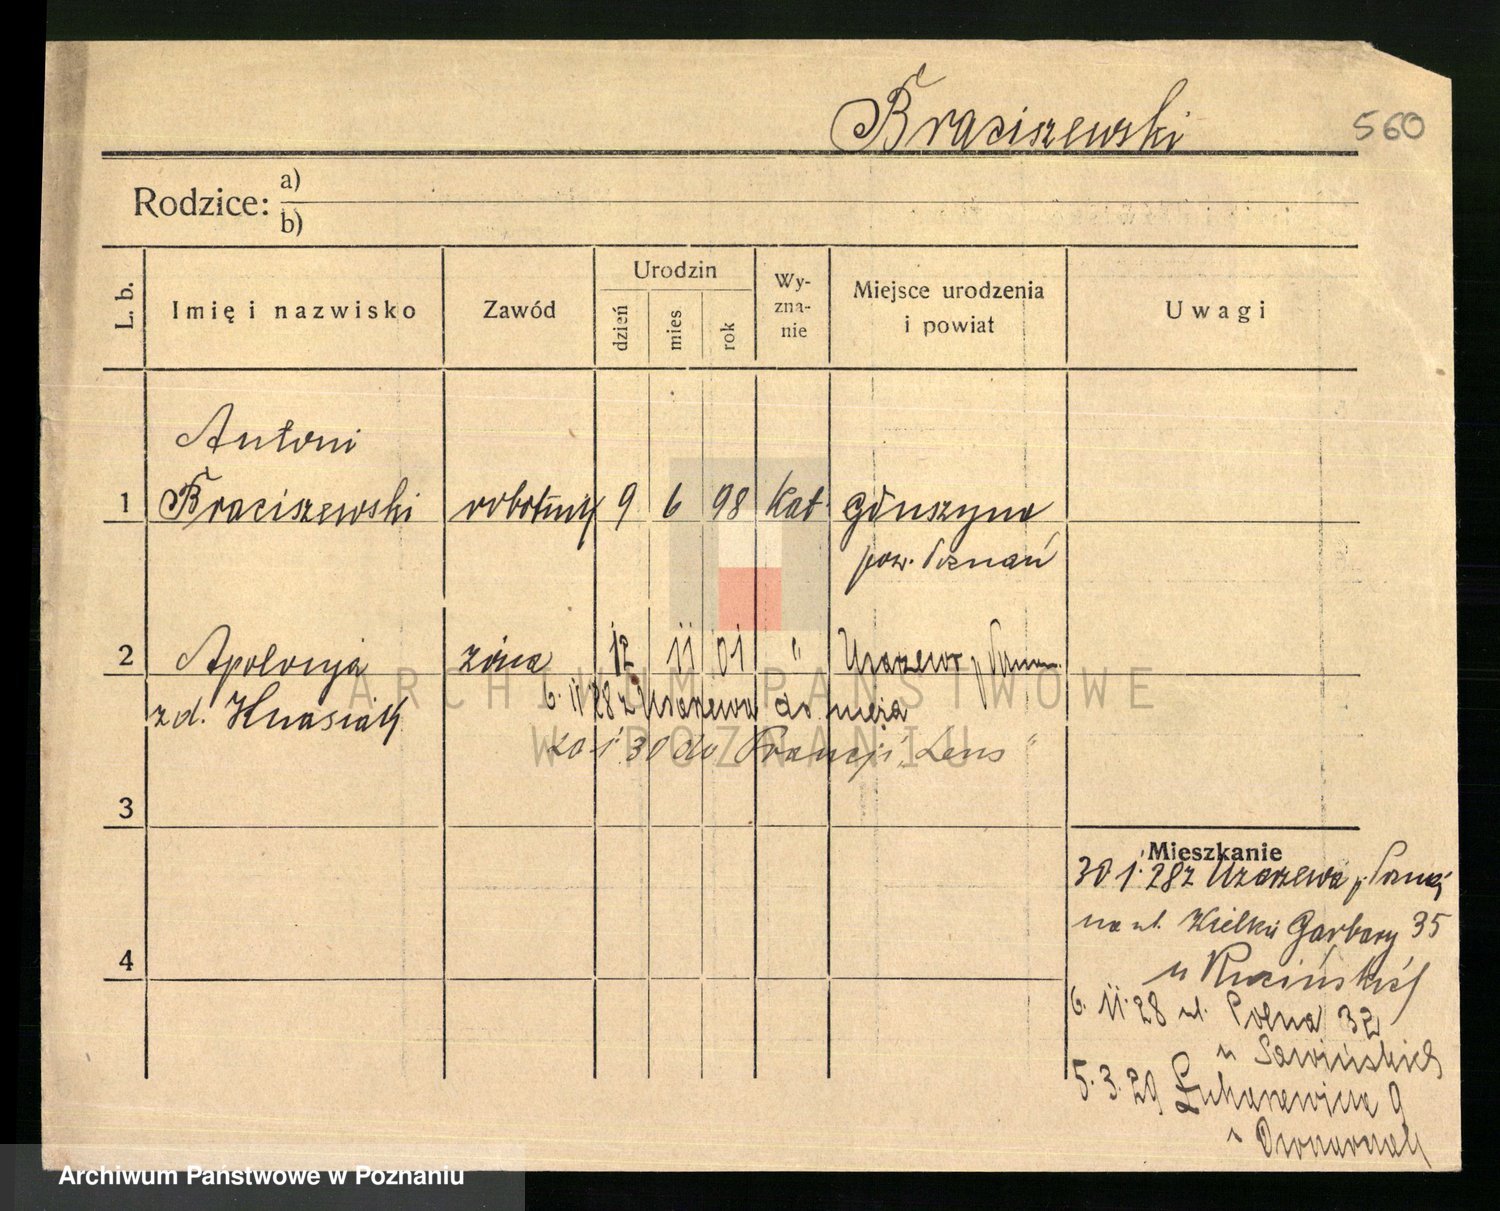 Braciszewski
560
Rodzice: a)
b)
L. b.
Imię i nazwisko
Zawód
Urodzin
dzień
mies
rok
Wy-
zna-
nie
Miejsce urodzenia
i powiat
Uwagi
Antoni
1 Braciszewski robotnik 9 6 98 Kat Głuszyna
pow. Poznań
2 Apolonja żona 12 11 01 " Uzarzewo p. Poznan.
z d. 6. 11 28 z Uzarzewa do męża
20 1 30 do Francji „Lens"
3
Mieszkanie
30 1. 28 z Uzarzewa p. Poznań
na ul. Wielkie Garbary 35
4
u
6. 11. 28 ul. Polna 32
u Sawińskich
5. 3. 29 Łukaszewicza 9
u
ARCHIWUM PAŃSTWOWE
W POZNANIU
Archiwum Państwowe w Poznaniu